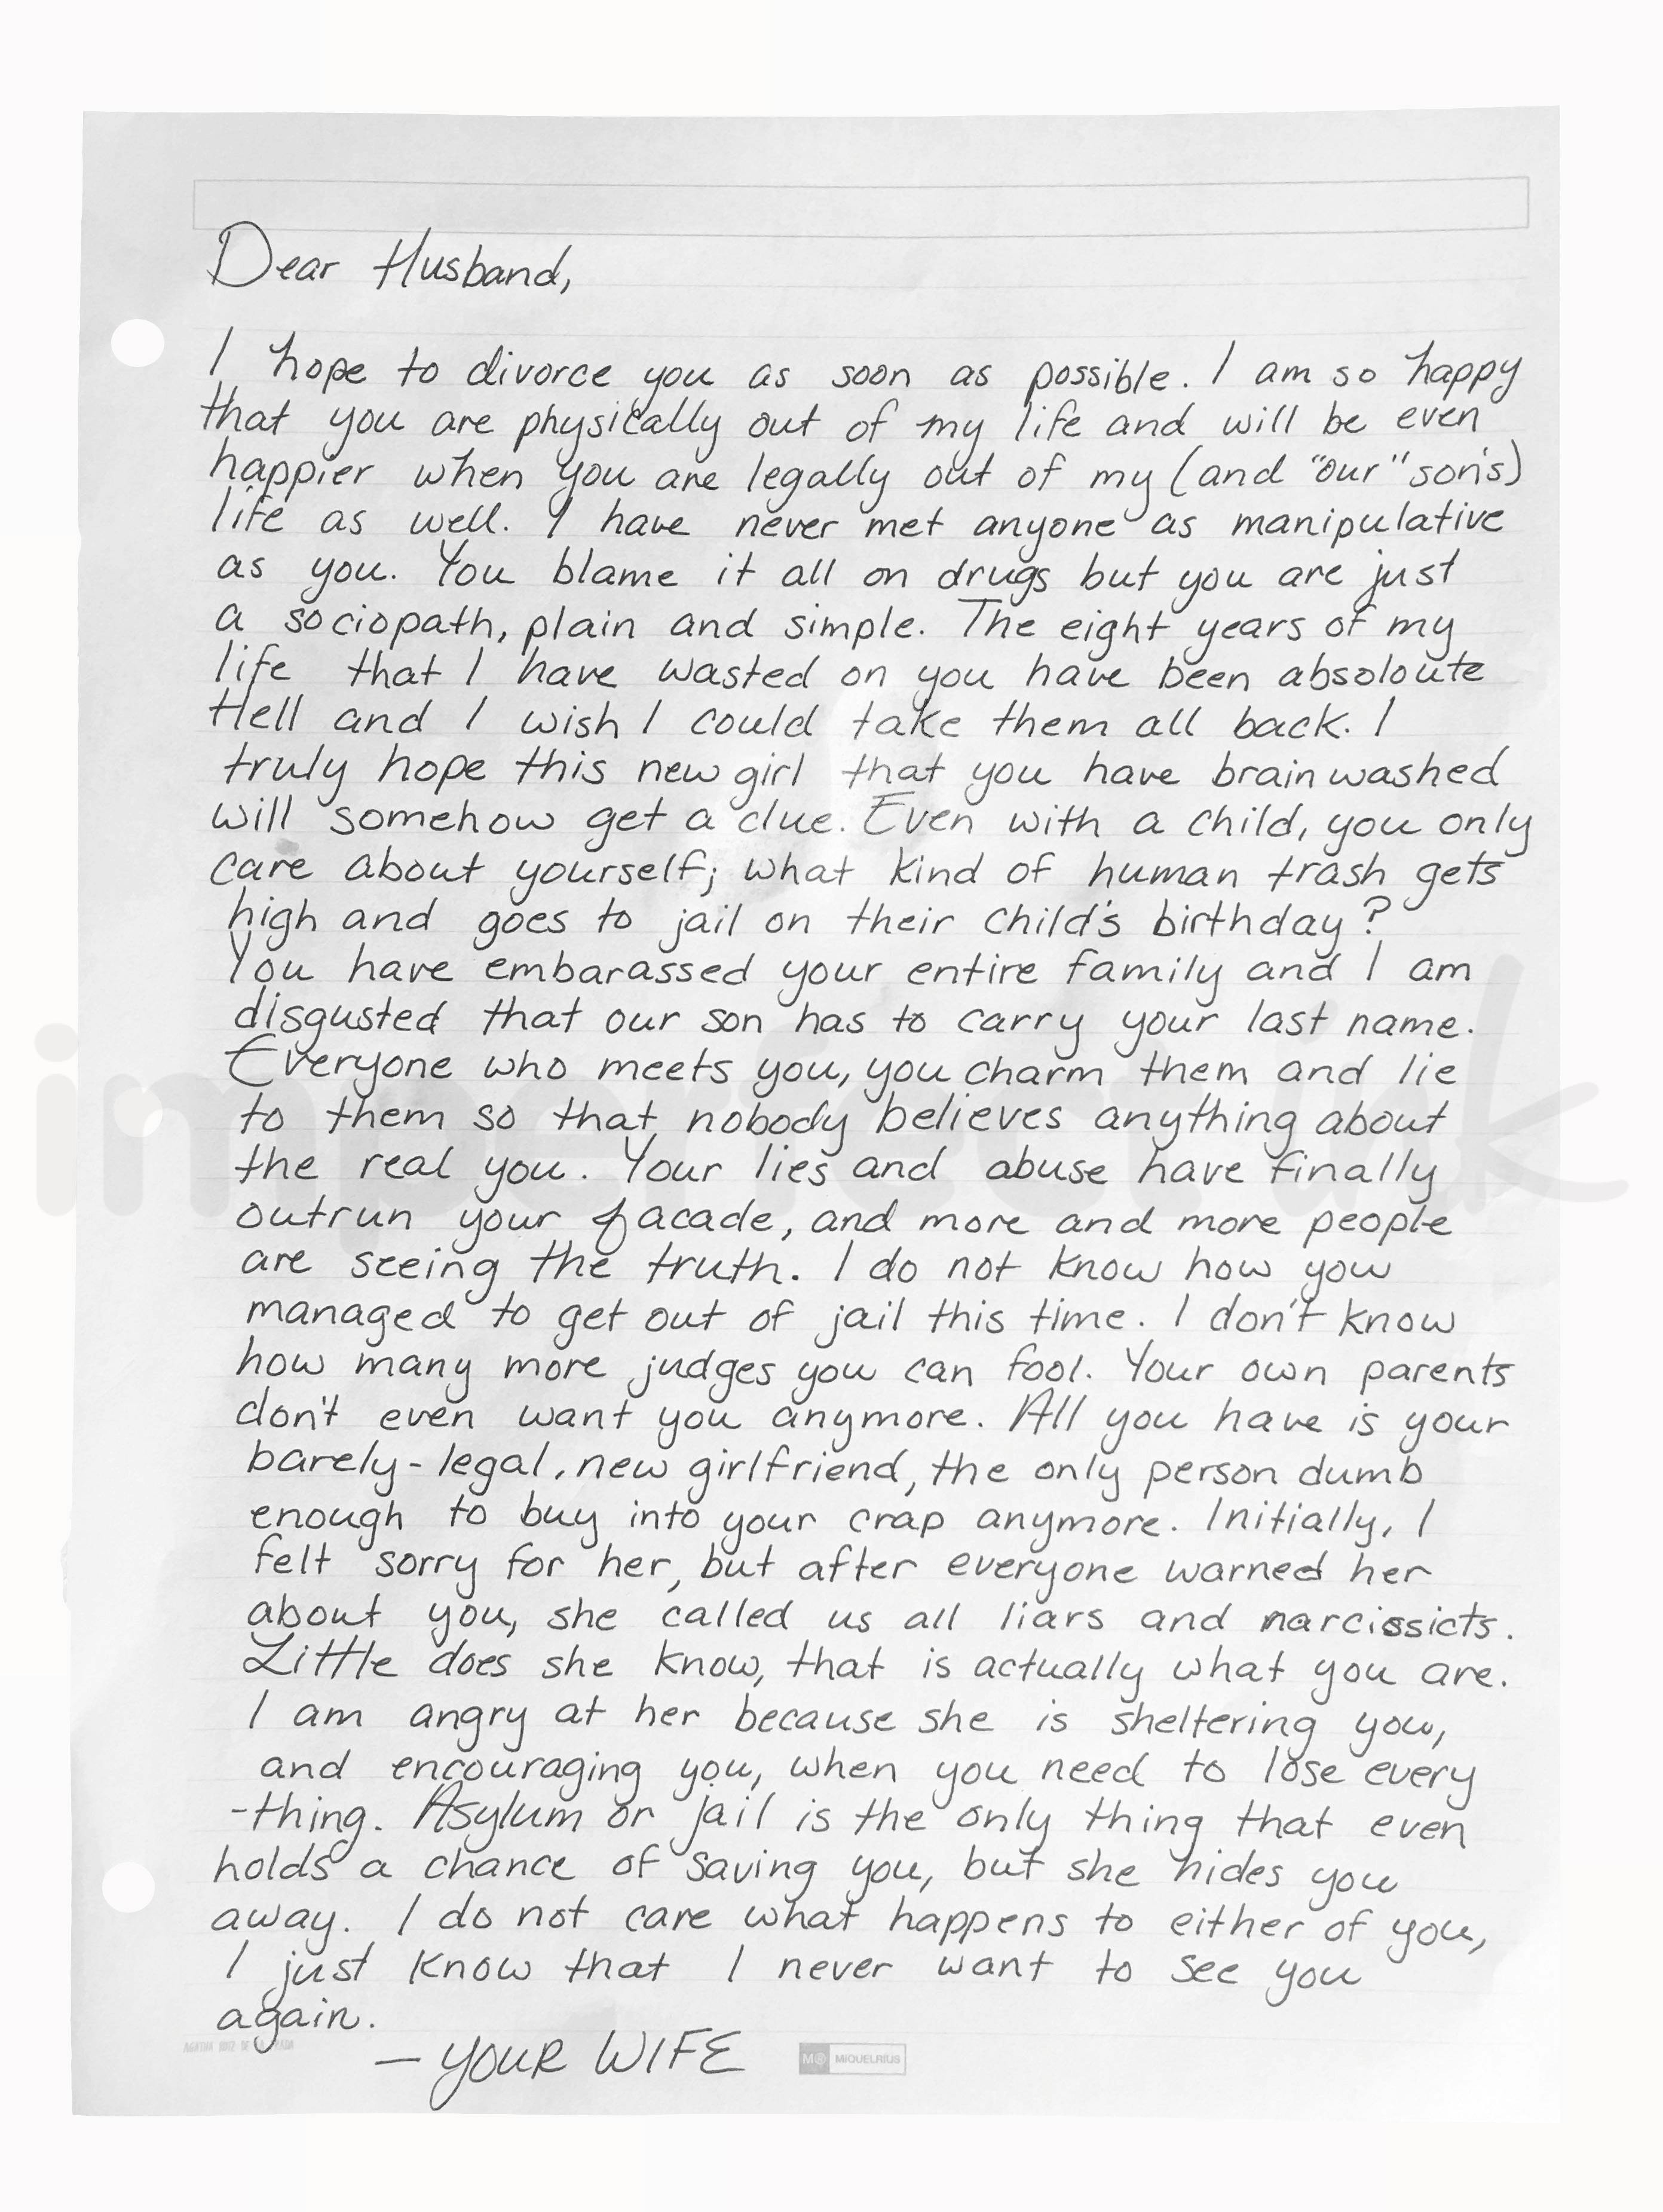 Dear Husband,
I hope to divorce you as soon as possible. I am so happy
that you are physically out of my life and will be even
happier when you are legally out of my (and "our" son's)
life as well. I have never met anyone as manipulative
as you. You blame it all on drugs but you are just
a sociopath, plain and simple. The eight years of my
life that I have wasted on you have been absoloute
Hell and I wish I could take them all back. I
truly hope this new girl that you have brainwashed
will somehow get a clue. Even with a child, you only
care about yourself; what kind of human trash gets
high and goes to jail on their child's birthday?
You have embarassed your entire family and I am
disgusted that our son has to carry your last name.
Everyone who meets you, you charm them and lie
to them so that nobody believes anything about
the real you. Your lies and abuse have finally
outrun your facade, and more and more people
are seeing the truth. I do not know how you
managed to get out of jail this time. I don't know
how many more judges you can fool. Your own parents
don't even want you anymore. All you have is your
barely-legal, new girlfriend, the only person dumb
enough to buy into your crap anymore. Initially, I
felt sorry for her, but after everyone warned her
about you, she called us all liars and narcissicts.
Little does she know, that is actually what you are.
I am angry at her because she is sheltering you,
and encouraging you, when you need to lose every
-thing. Asylum or jail is the only thing that even
holds a chance of saving you, but she hides you
away. I do not care what happens to either of you,
I just know that I never want to see you
again.
— YOUR WIFE
MIQUELRIUS